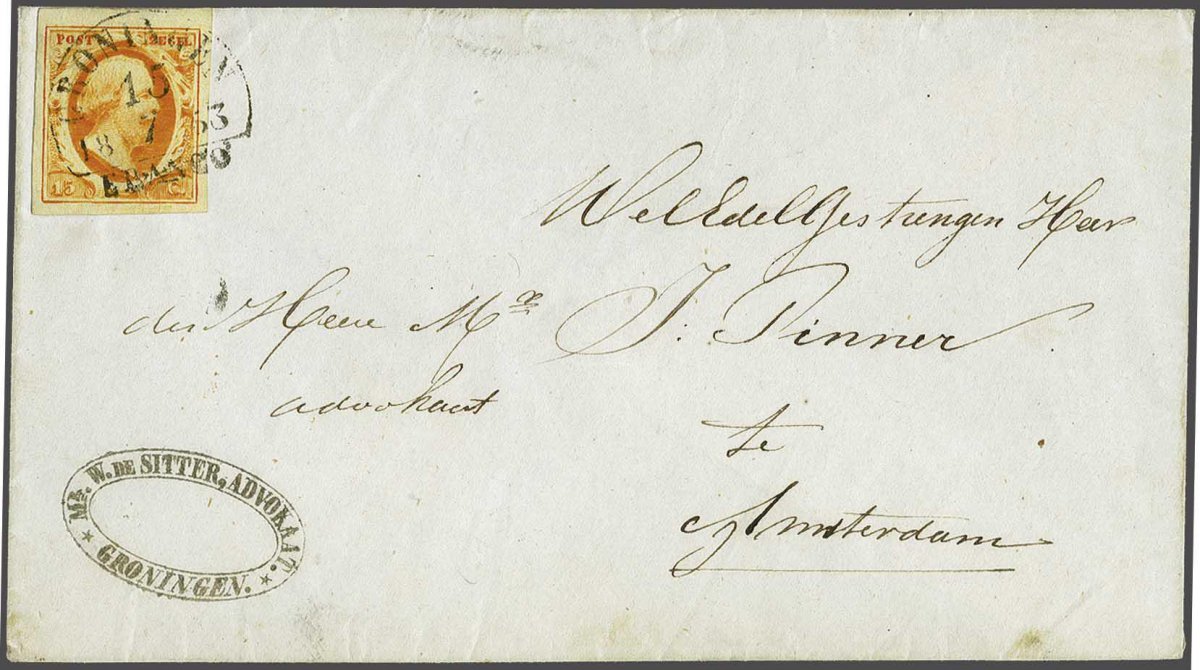 POST ZEGEL
GRONINGEN
15
7
18 53
FRANCO
15 C.
WelEdelGestrengen Heer
den Heere Mr J. Pinner
advokaat
te
Amsterdam
MR. W. DE SITTER, ADVOKAAT.
* GRONINGEN. *